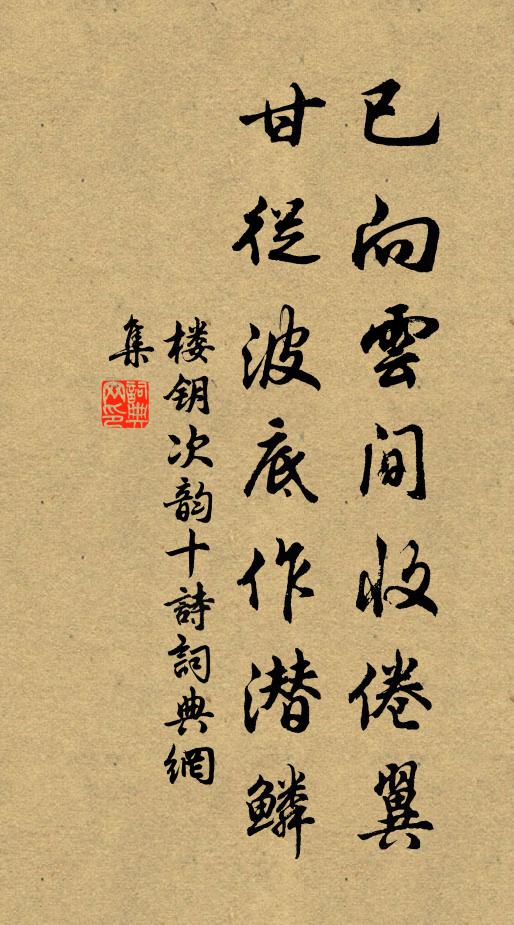 已向雲間收倦翼
甘從波底作潜鱗
楼钥次韵十詩詞典網
集
詞典
网印